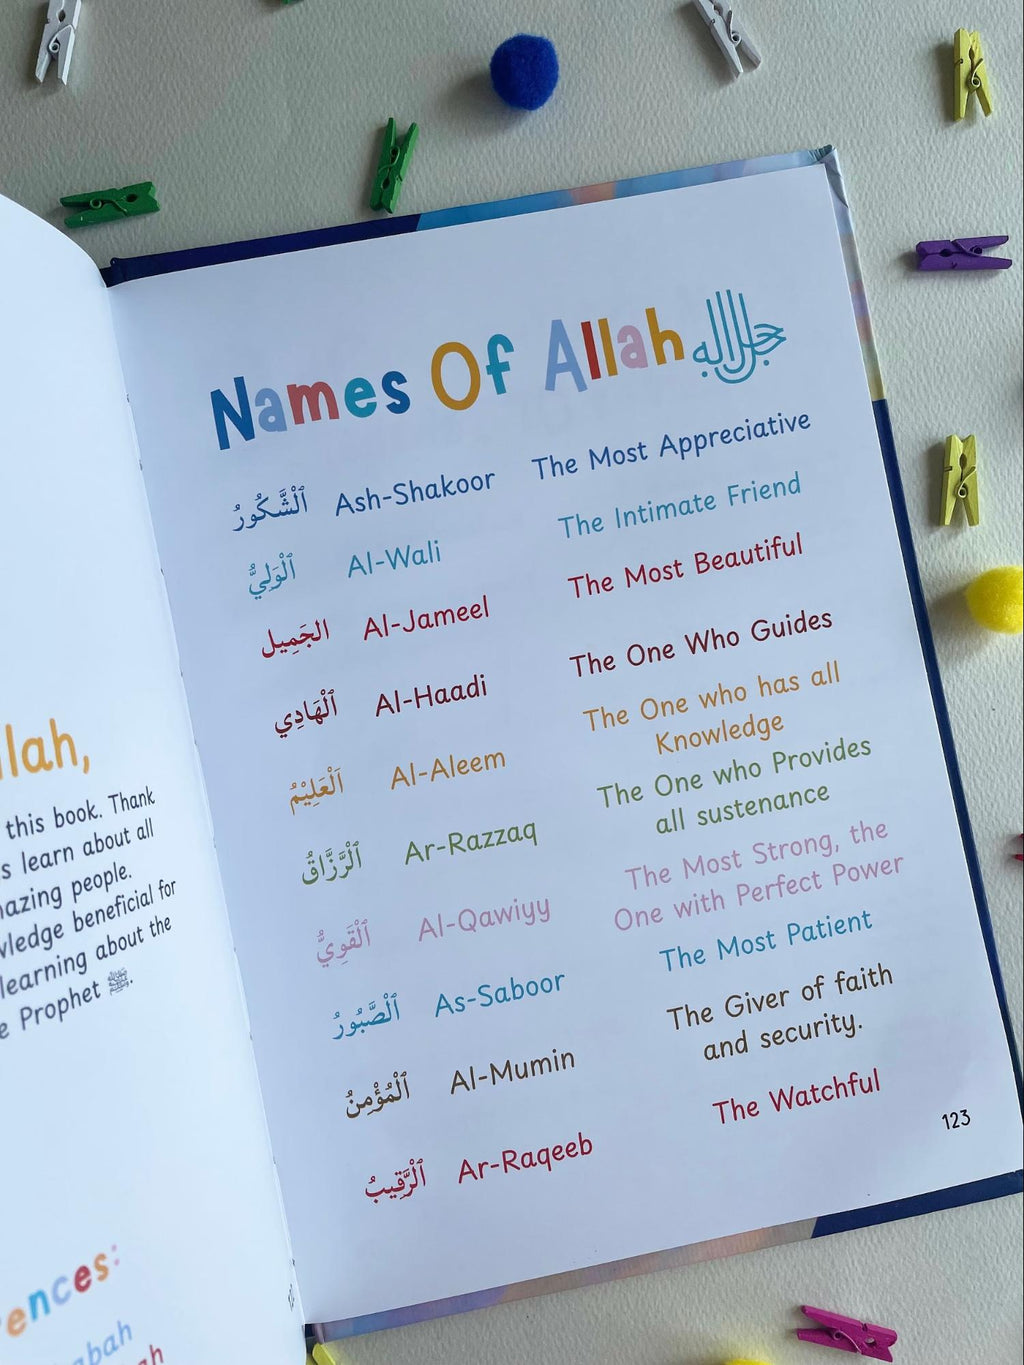 llah,
this book. Thank
s learn about all
azing people.
wledge beneficial for
learning about the
e Prophet ﷺ.
ences:
abah
ah
Names Of Allah جل جلاله
ٱلْشَّكُورُ Ash-Shakoor The Most Appreciative
ٱلْوَلِيُّ Al-Wali The Intimate Friend
الجَمِيل Al-Jameel The Most Beautiful
ٱلْهَادِي Al-Haadi The One Who Guides
اَلْعَلِيْمُ Al-Aleem The One who has all
Knowledge
ٱلْرَّزَّاقُ Ar-Razzaq The One who Provides
all sustenance
ٱلْقَوِيُّ Al-Qawiyy The Most Strong, the
One with Perfect Power
ٱلْصَّبُورُ As-Saboor The Most Patient
ٱلْمُؤْمِنُ Al-Mumin The Giver of faith
and security.
ٱلْرَّقِيبُ Ar-Raqeeb The Watchful
123